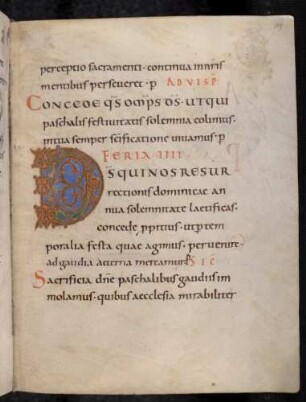 perceptio sacramenti· continua innris
mentibus perseueret· p̄ ADVESP̄
Concede qs̄ omp̄s ds̄· ut qui
paschalis festiuitatis solemnia colimus·
in tua semper sc̄ificatione uiuamus· p̄
FERIA IIII
DS̄ QUI NOS RESUR
rectionis dominicae an
nua solemnitate laetificas·
concede, ppitius· ut p tem
poralia festa quae agimus· peruenire
ad gaudia aeterna mereamur·
Sacrificia dn̄e paschalibus gaudiis im
molamus· quibus aecclesia mirabiliter